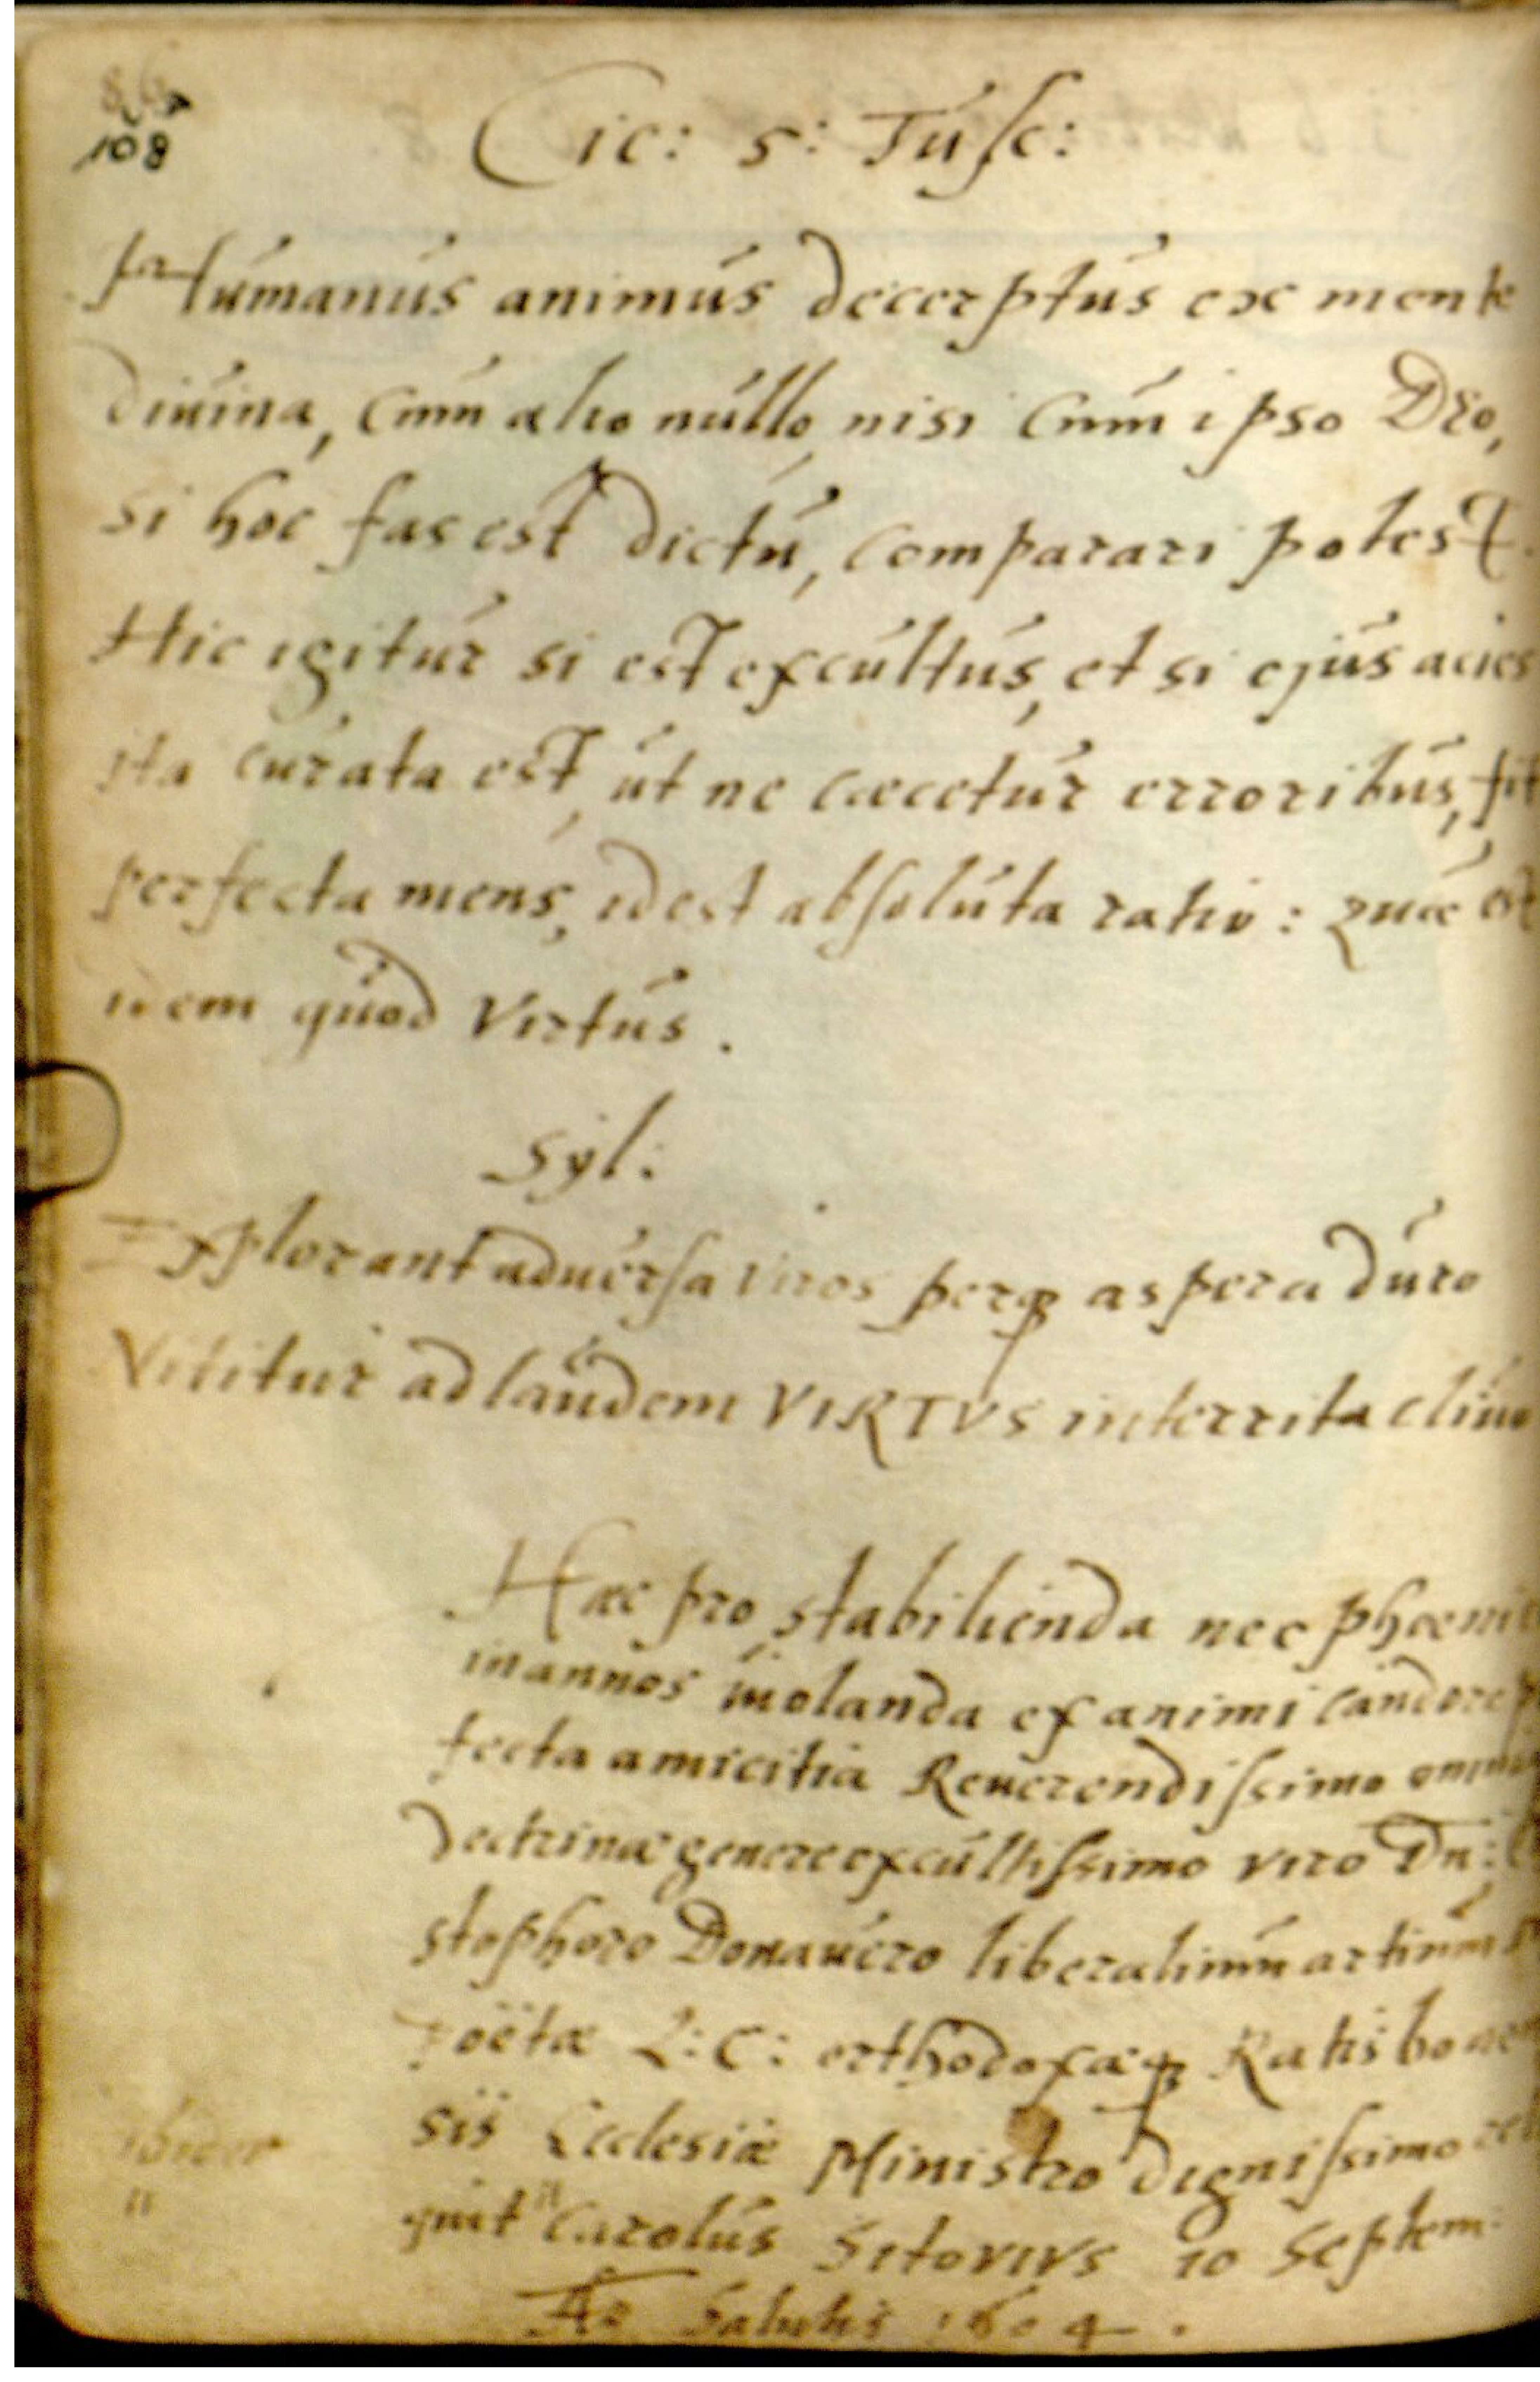 108
Cic: 5: Tusc:
Humanus animus decerptus ex mente
divina, cum alio nullo, nisi cum ipso Deo,
si hoc fas est dictu, comparari potest.
Hic igitur si est excultus, et si ejus acies
ita curata est, ut ne cæcetur erroribus, fit
perfecta mens, id est absoluta ratio: quæ est
idem quod Virtus.
Syl:
Explorant adversa viros perq aspera duro
Nititur ad laudem VIRTVS interrita clivo
Hæc pro stabilienda nec phœni
in annos violanda ex animi candore
fecta amicitia Reverendissimo omni
doctrinæ genere excultissimo viro Dn:
stophoro Donavero liberalium artium
Poëtæ L: C: orthodoxæq Ratisbonen
sis Ecclesiæ Ministro dignissimo reli
quit Carolus Sitovivs 10 Septem:
Ao Salutis 1604.
ibidem